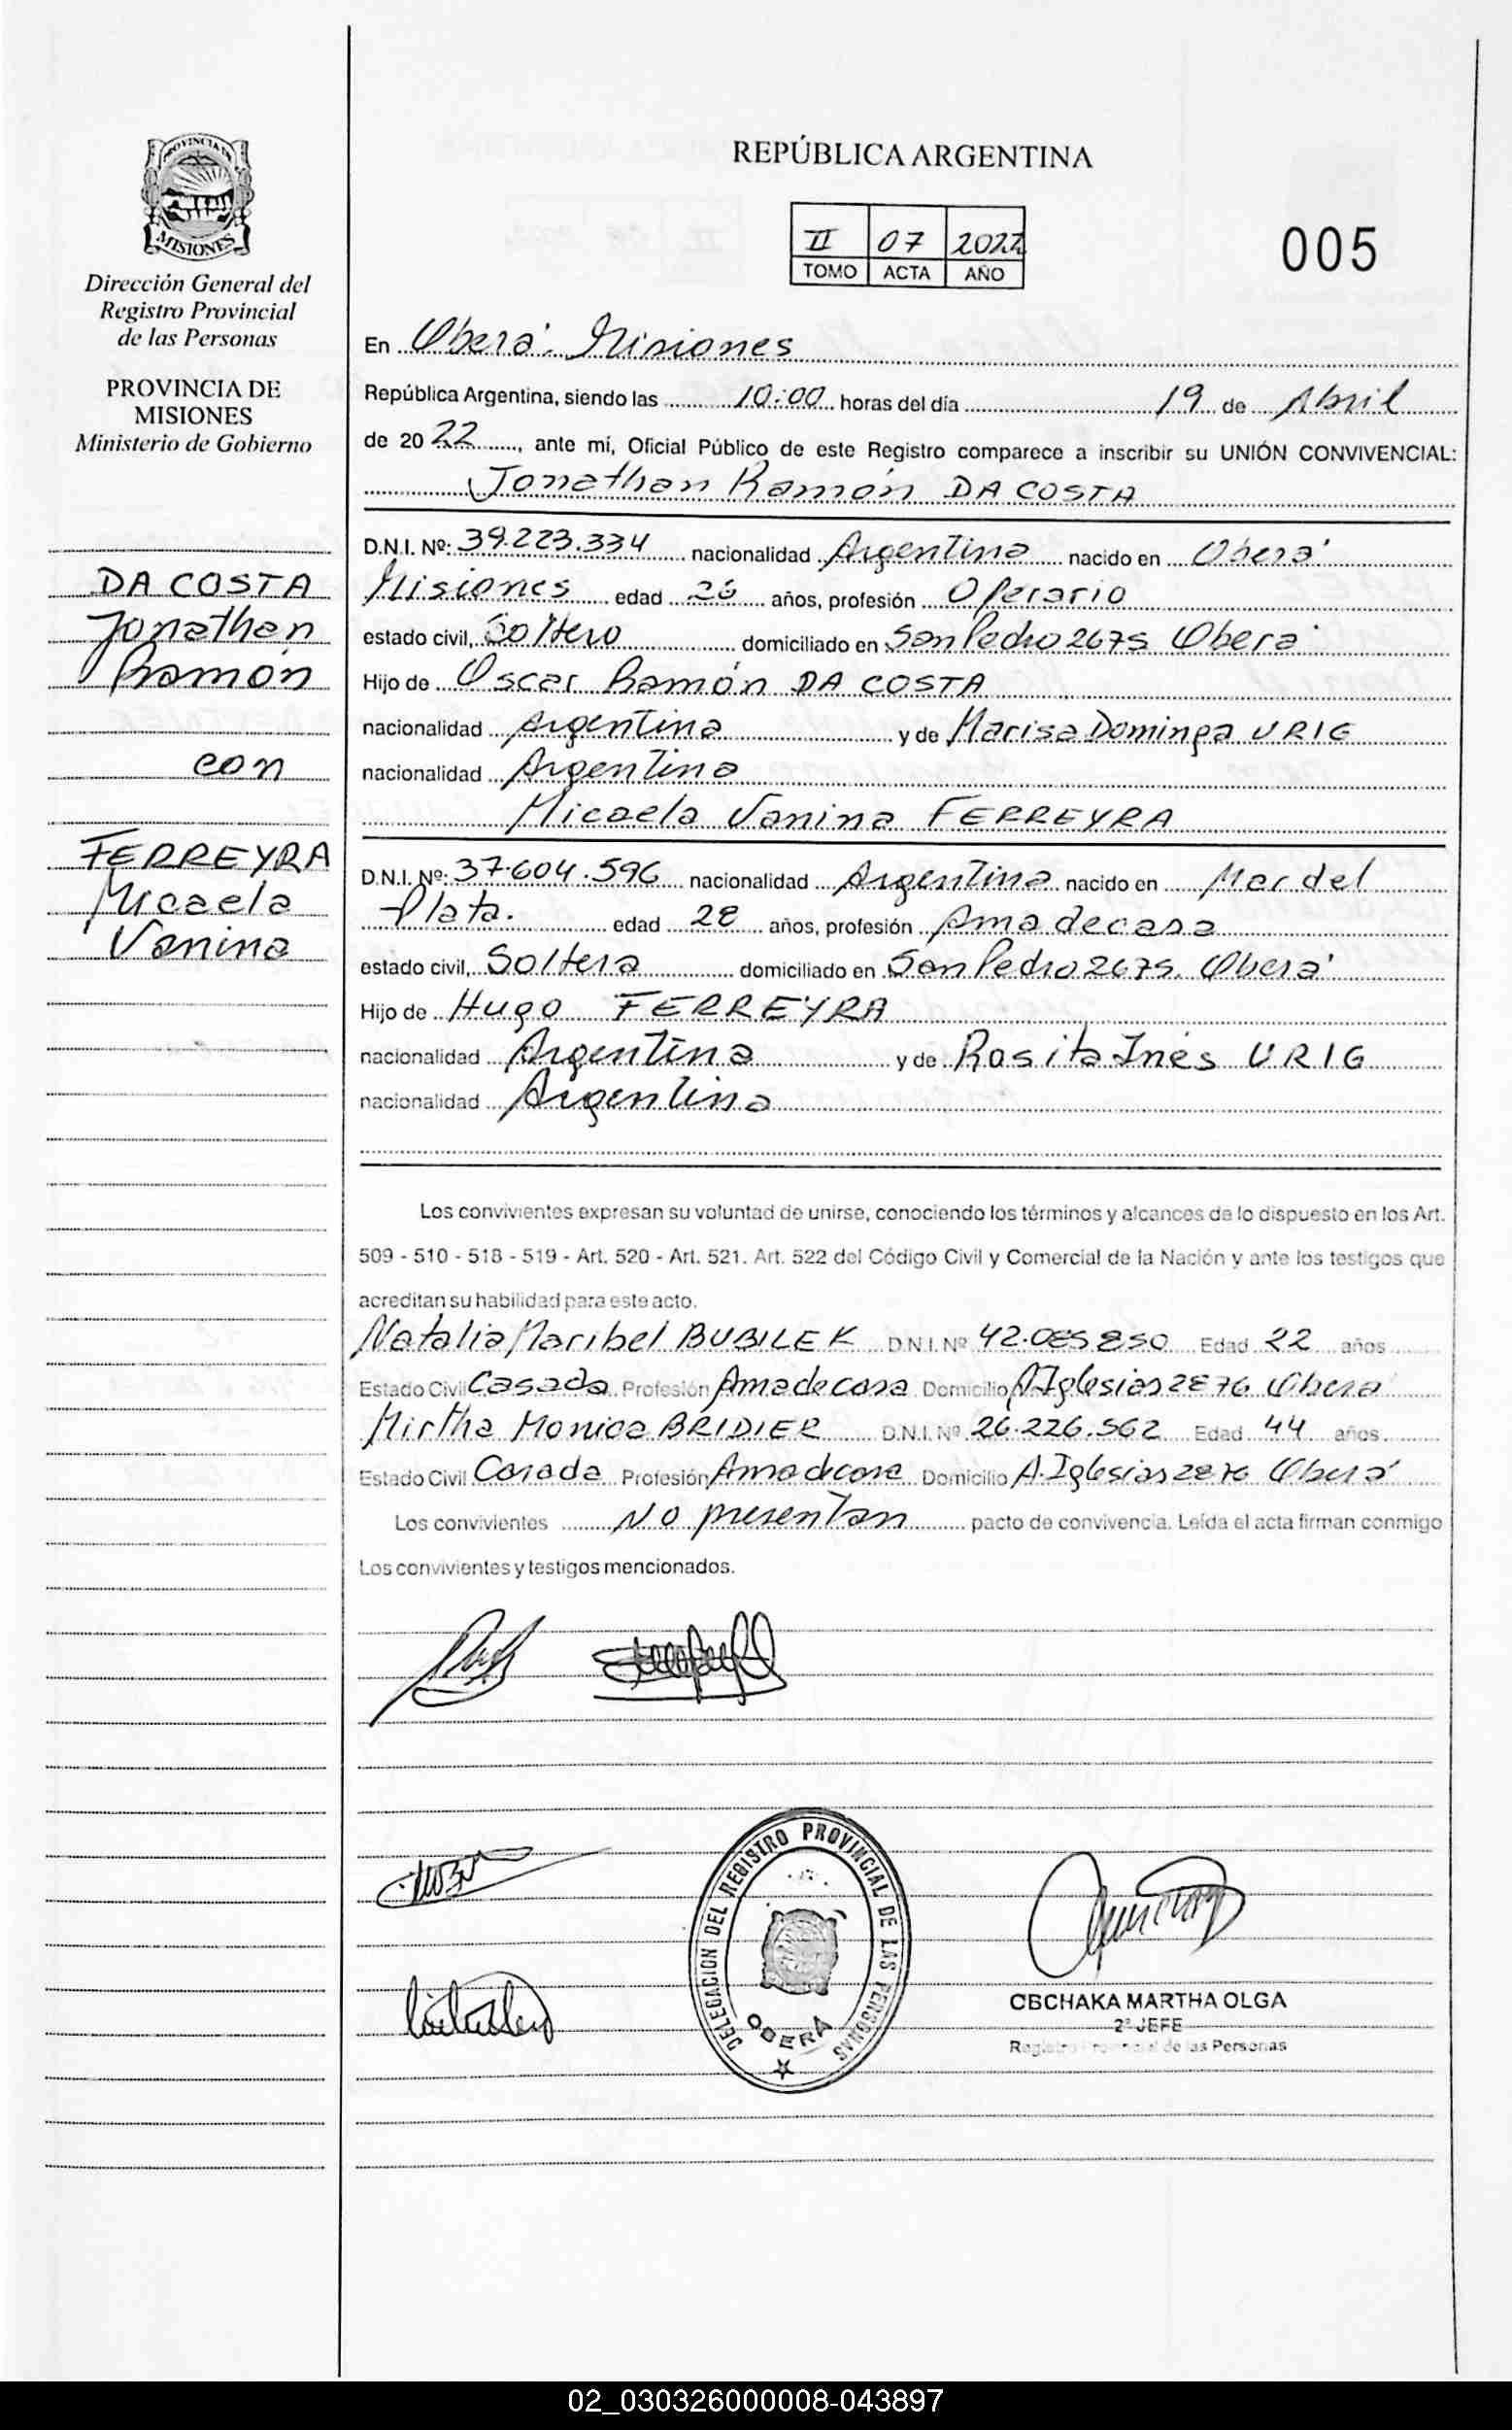 PROVINCIA DE
MISIONES
Dirección General del
Registro Provincial
de las Personas
PROVINCIA DE
MISIONES
Ministerio de Gobierno
DA COSTA
Jonathan
Ramón
con
FERREYRA
Micaela
Vanina
REPÚBLICA ARGENTINA
II 07 2022
TOMO ACTA AÑO
005
En Oberá. Misiones
República Argentina, siendo las 10:00 horas del día 19 de Abril
de 2022, ante mí, Oficial Público de este Registro comparece a inscribir su UNIÓN CONVIVENCIAL:
Jonathan Ramón DA COSTA
D.N.I. Nº: 39.223.334 nacionalidad Argentina nacido en Oberá
Misiones edad 26 años, profesión Operario
estado civil, Soltero domiciliado en San Pedro 2675 Oberá
Hijo de Oscar Ramón DA COSTA
nacionalidad Argentina y de Marisa Dominga URIG
nacionalidad Argentina
Micaela Vanina FERREYRA
D.N.I. Nº: 37.604.596 nacionalidad Argentina nacido en Mar del
Plata. edad 28 años, profesión Ama de casa
estado civil, Soltera domiciliado en San Pedro 2675. Oberá
Hijo de Hugo FERREYRA
nacionalidad Argentina y de Rosita Inés URIG
nacionalidad Argentina
Los convivientes expresan su voluntad de unirse, conociendo los términos y alcances de lo dispuesto en los Art.
509 - 510 - 518 - 519 - Art. 520 - Art. 521. Art. 522 del Código Civil y Comercial de la Nación y ante los testigos que
acreditan su habilidad para este acto.
Natalia Maribel BUBILEK D.N.I. Nº 42.085850 Edad 22 años
Estado Civil Casada Profesión Ama de casa Domicilio A Iglesias 2876 Oberá
Mirtha Monica BRIDIER D.N.I. Nº 26.226.562 Edad 44 años
Estado Civil Casada Profesión Ama de casa Domicilio A. Iglesias 2876 Oberá
Los convivientes No presentan pacto de convivencia. Leída el acta firman conmigo
Los convivientes y testigos mencionados.
DELEGACION DEL REGISTRO PROVINCIAL DE LAS PERSONAS
OBERÁ
OBCHAKA MARTHA OLGA
2º JEFE
Registro Provincial de las Personas
02_030326000008-043897